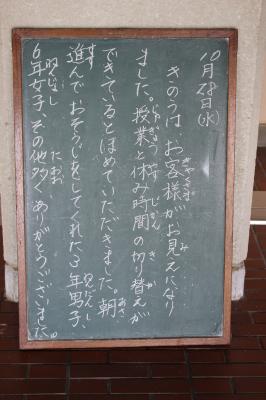 10月28日(水)
きのうは、お客様がお見えになり
ました。授業と休み時間の切り替えが
できているとほめていただきました。朝
進んでおそうじをしてくれた3年男子、
6年女子、その他多く ありがとうございました。